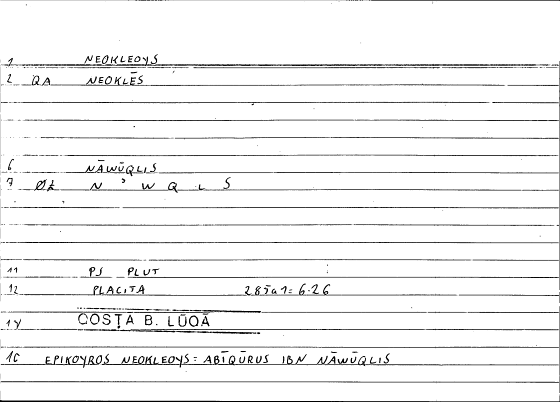 1 NEOKLEOYS
2 QA NEOKLĒS
6 NĀWŪQLIS
7 ØŁ N ʾ W Q L S
11 PS PLUT
12 PLACITA 285a1 = 6.26
14 QOSṬĀ B. LŪQĀ
16 EPIKOYROS NEOKLEOYS = ABĪQŪRUS IBN NĀWŪQLIS